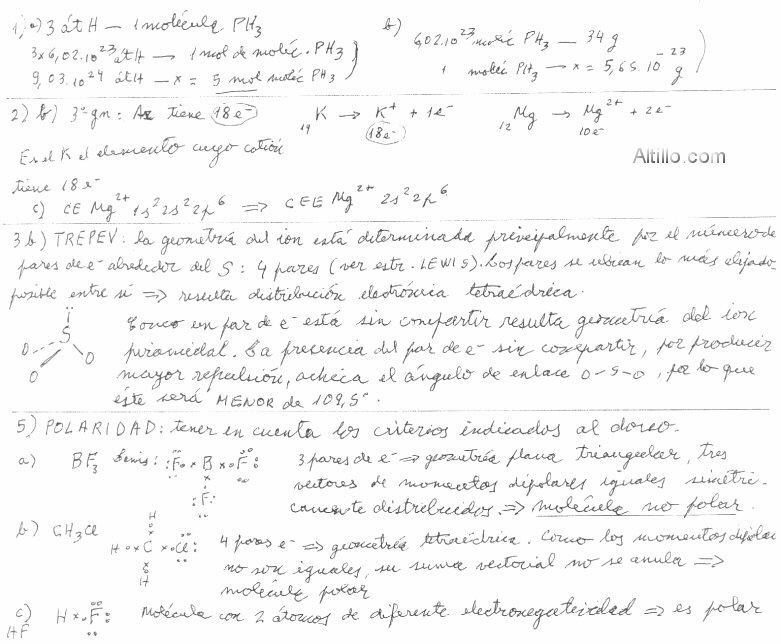 1) a) 3 át H — 1 molécula PH3
3x6,02.10^23 át H — 1 mol de moléc. PH3
9,03.10^24 át H — x = 5 mol moléc PH3
b) 6,02.10^23 moléc PH3 — 34 g
1 moléc PH3 — x = 5,65.10^-23 g
2) b) 3° gn: Ar tiene 18e-
19K → K+ + 1e-
18e-
12Mg → Mg2+ + 2e-
10e-
Es el K el elemento cuyo catión
tiene 18 e-
Altillo.com
c) CE Mg2+ 1s2 2s2 2p6 ⇒ CEE Mg2+ 2s2 2p6
3 b) TREPEV: la geometría del ion está determinada principalmente por el número de
pares de e- alrededor del S: 4 pares (ver estr. LEWIS). Los pares se ubican lo más alejado
posible entre sí ⇒ resulta distribución electrónica tetraédrica.
S
O
O
O
Como un par de e- está sin compartir resulta geometría del ion
piramidal. La presencia del par de e- sin compartir, por producir
mayor repulsión, achica el ángulo de enlace O-S-O, por lo que
éste será MENOR de 109,5°.
5) POLARIDAD: tener en cuenta los criterios indicados al dorso.
a) BF3 Lewis: F B F
F
3 pares de e- ⇒ geometría plana triangular, tres
vectores de momentos dipolares iguales simétri-
camente distribuidos. ⇒ molécula no polar.
b) CH3Cl
H
H C Cl
H
4 pares e- ⇒ geometría tetraédrica. Como los momentos dipolar
no son iguales, su suma vectorial no se anula ⇒
molécula polar
c) H F Molécula con 2 átomos de diferente electronegatividad ⇒ es polar
HF